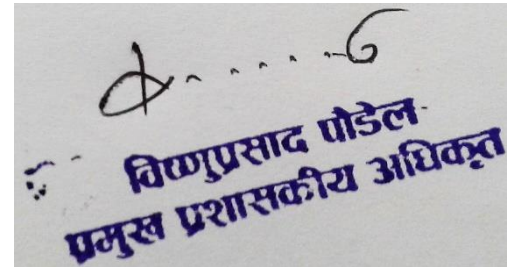 विष्णुप्रसाद पौडेल
प्रमुख प्रशासकीय अधिकृत